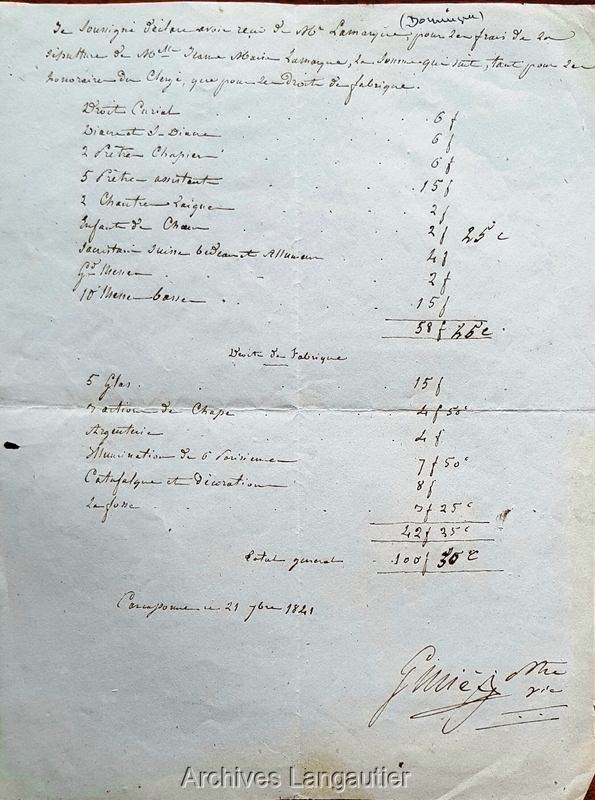 (Dominique)
Je soussigné déclare avoir reçu de Mr Lamarque, pour les frais de la
sépulture de Melle Jeanne Marie Lamarque, la somme qui suit, tant pour les
honoraire du Clergé, que pour le Droit de fabrique.
Droit Curial . . . . 6 f
Diacre et S. Diacre . . . . 6 f
2 Prêtre Chapier . . . . 6 f
5 Prêtre assistant . . . . 15 f
2 Chantre Laique . . . . 2 f
Enfant de Chœur . . . . 2 f 25 c
Sacristain Suisse bedeau et Allumeur . . 4 f
Gd Messe . . . . 2 f
10 Messe basse . . . . 15 f
58 f 25 c
Droit de Fabrique
5 Glas . . . . 15 f
3 action de Chape . . . . 4 f 50 c
Argenterie . . . . 4 f
Illumination de 6 Parisienne . . 7 f 50 c
Catafalque et décoration . . . 8 f
La fosse . . . . 3 f 25 c
42 f 25 c
Total general . . 100 f 50 c
Carcassonne le 21 7bre 1841
Ginié ptre
vic
Archives Langautier